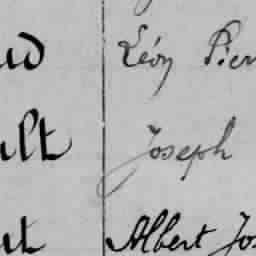 ud Léon Pier
ult Joseph
ut Albert Jos